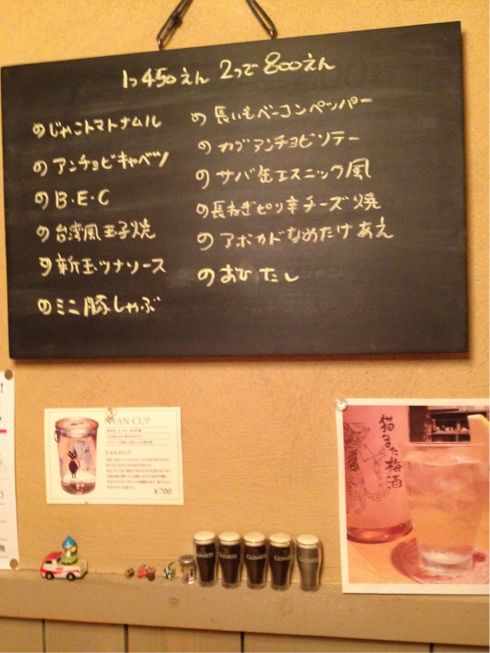 1つ450えん 2つで800えん
のじゃこトマトナムル
のアンチョビキャベツ
のB・E・C
の台湾風玉子焼
の新玉ツナソース
のミニ豚しゃぶ
の長いもベーコンペッパー
のカブアンチョビソテー
のサバ缶エスニック風
の長ねぎピリ辛チーズ焼
のアボカドなめたけあえ
のおひたし
NYAN CUP
にゃんカップ
¥700
猫また梅酒
GUINNESS
GUINNESS
GUINNESS
GUINNESS
GUINNESS